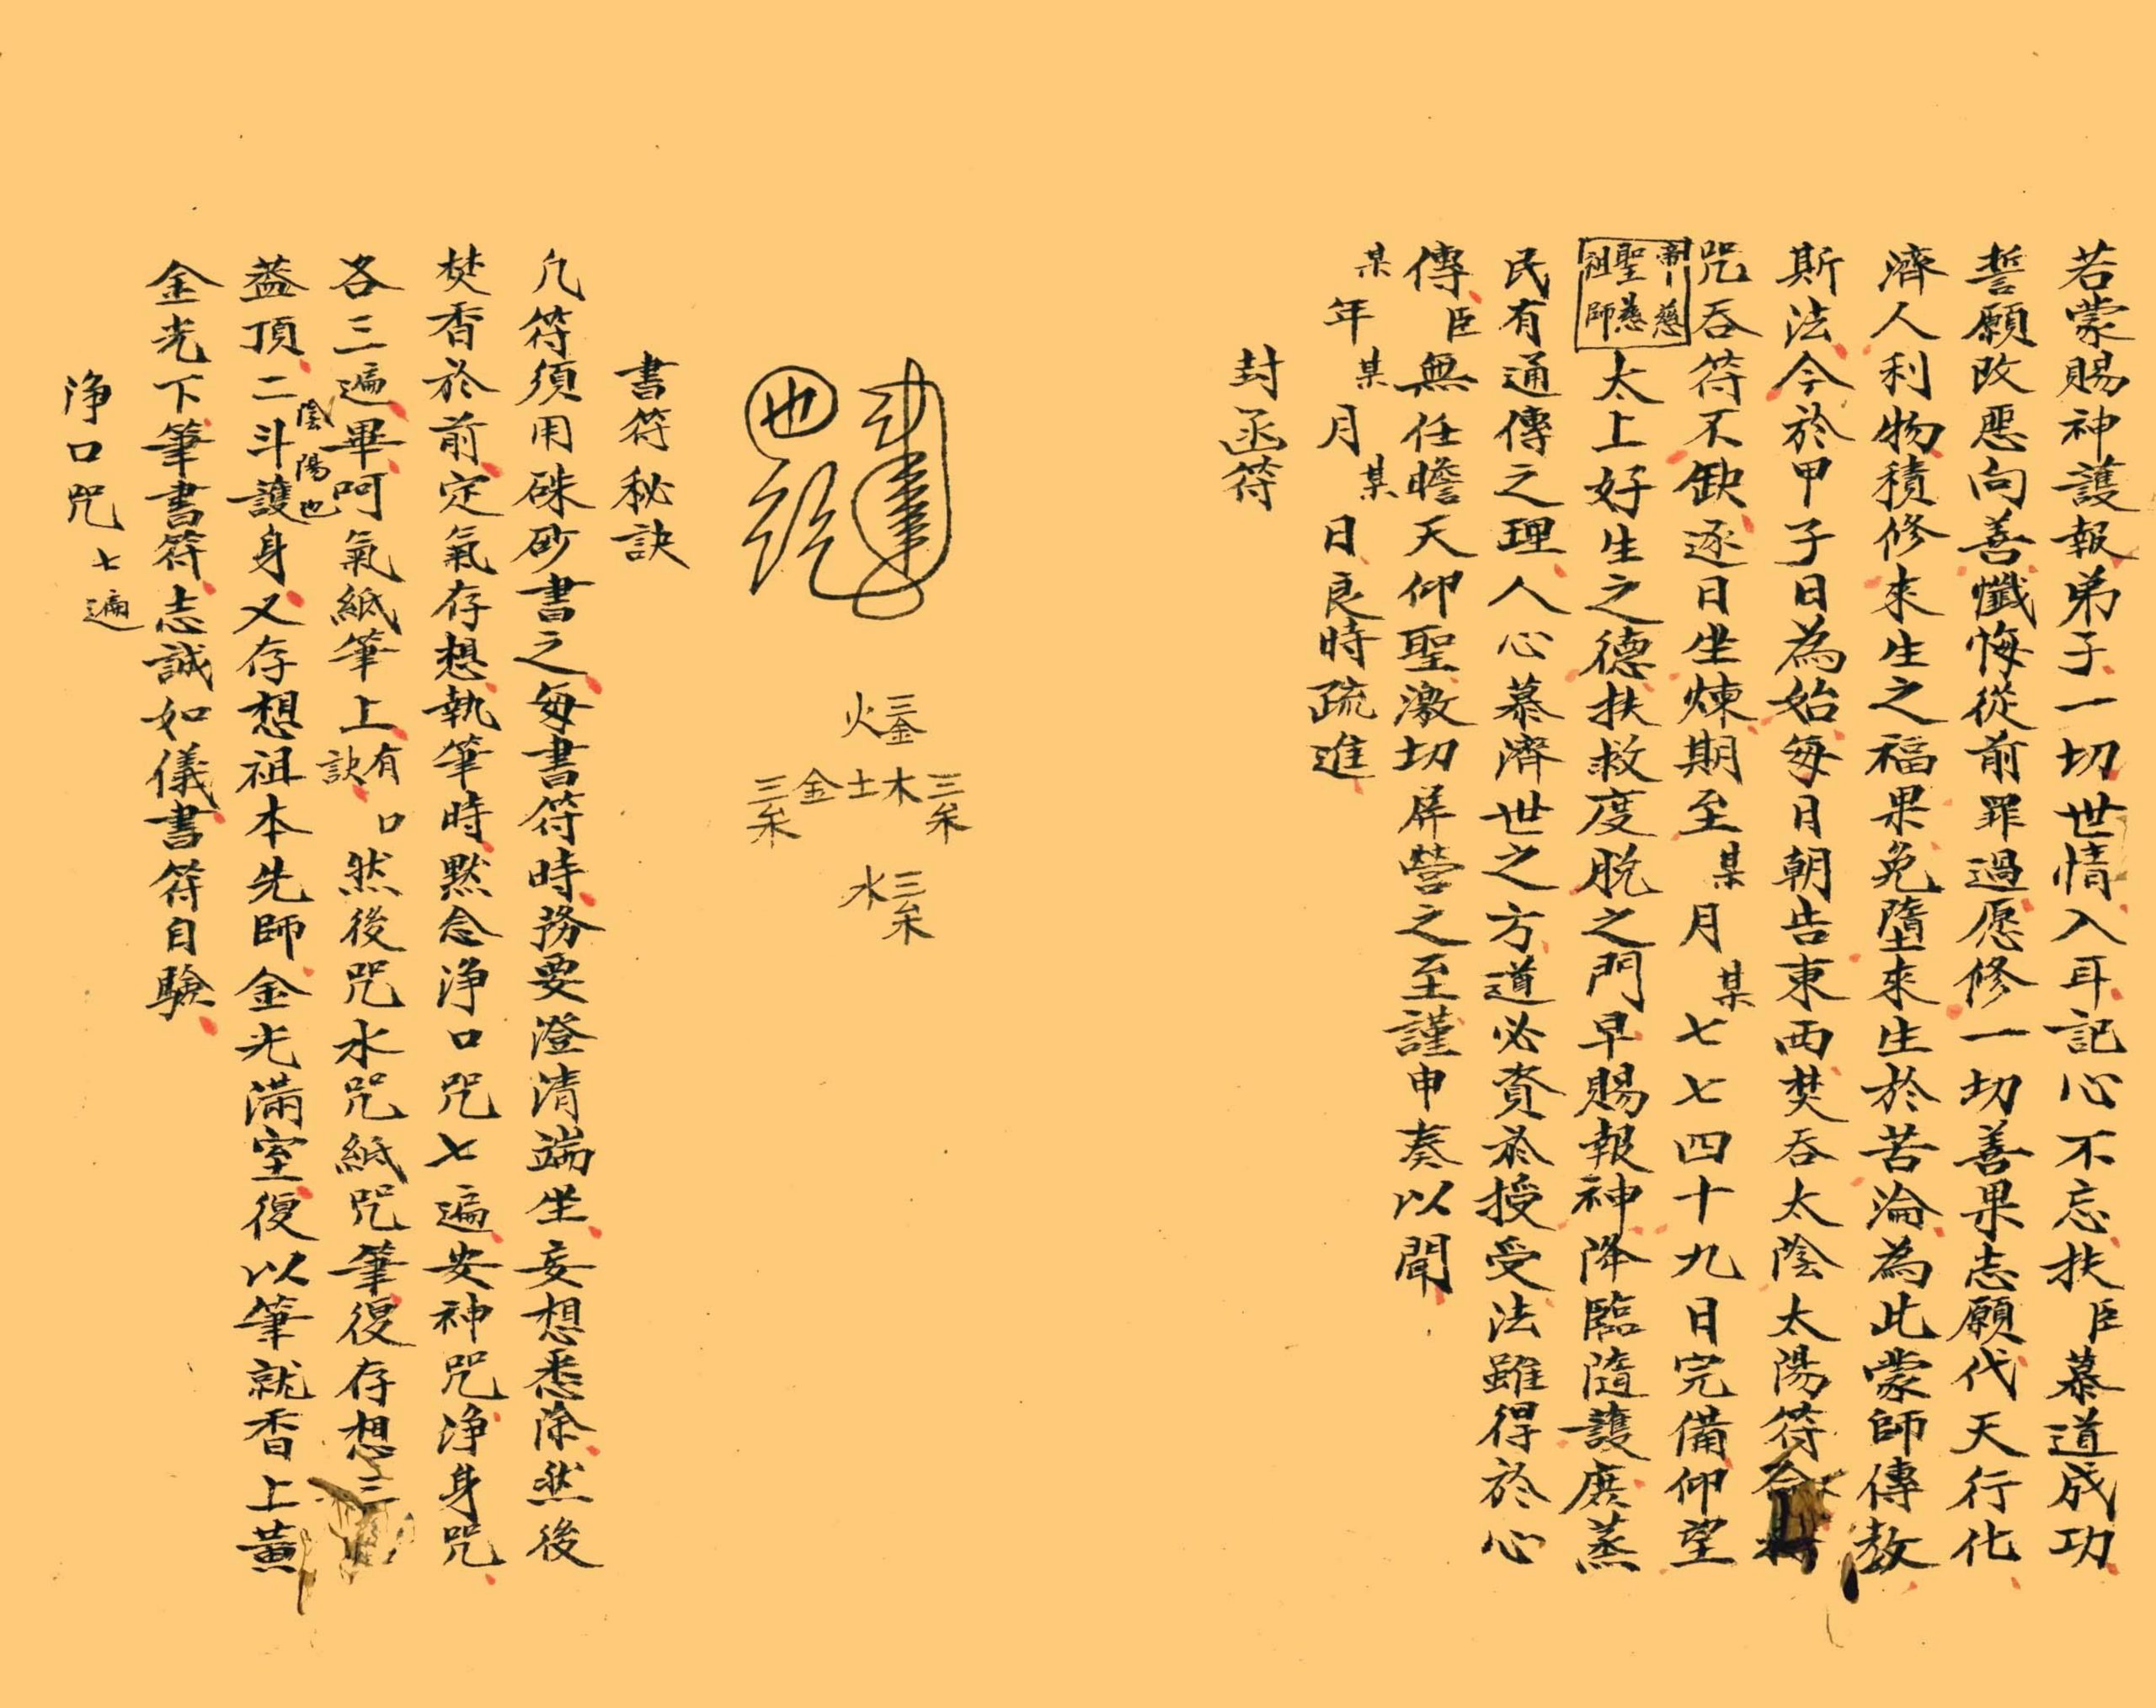 若蒙賜神護報弟子一切世情入耳記心不忘扶臣慕道成功
誓願改惡向善懺悔從前罪過愿修一切善果志願代天行化
濟人利物積修來生之福果免墮來生於苦淪為此蒙師傳教
斯法今於甲子日為始每月朝告東西焚吞太陰太陽符
咒吞符不缺逐日坐煉期至某月某七七四十九日完備仰望
慈
聖慈
祖師
太上好生之德扶救度脫之門早賜報神降臨隨護庶蒸
民有通傳之理人心慕濟世之方道必資於授受法雖得於心
傳臣無任瞻天仰聖激切屏營之至謹申奏以聞
某年某月某日良時疏進
封函符
也
三金
火
三炁
木土金
三炁
三炁
水
書符秘訣
凡符須用硃砂書之每書符時務要澄清端坐妄想悉除然後
焚香於前定氣存想執筆時默念淨口咒七遍安神咒淨身咒
各三遍畢呵氣紙筆上有訣口然後咒水咒紙咒筆復存想三
蓋頂二斗陰陽也護身又存想祖本先師金光滿室復以筆就香上黃
金光下筆書符志誠如儀書符自驗
淨口咒七遍